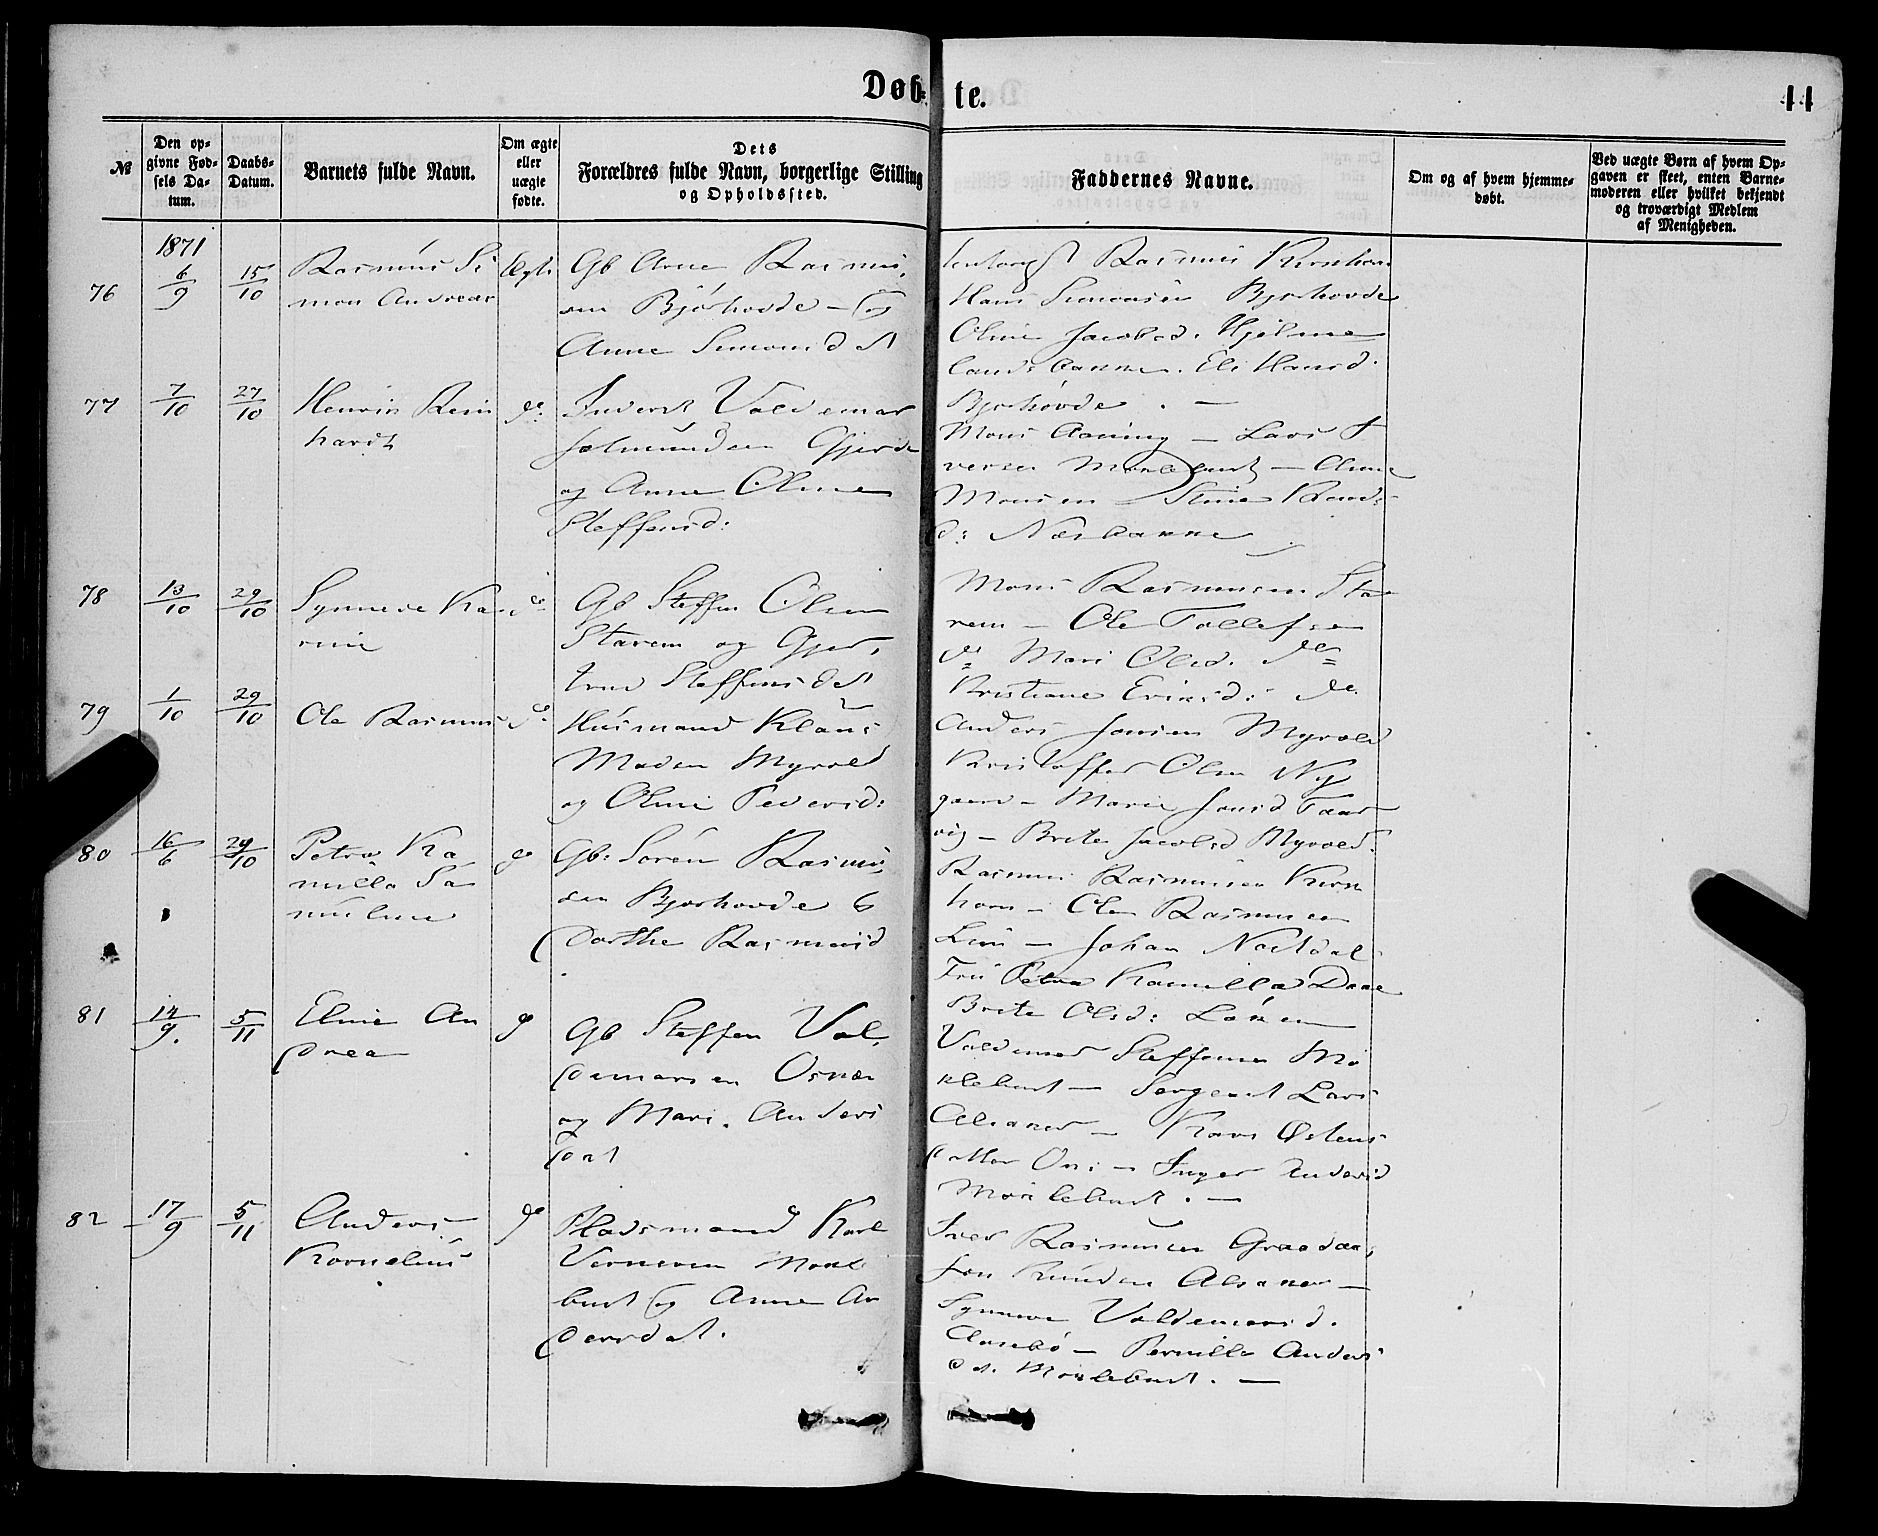 Døb-te.
11
№
Den op-
givne Fød-
sels Da-
tum.
Daabs-
Datum.
Barnets fulde Navn.
Om ægte
eller
uægte
fødte.
Dets
Forældres fulde Navn, borgerlige Stilling
og Opholdssted.
Faddernes Navne.
Om og af hvem hjemme-
døbt.
Ved uægte Børn af hvem Op-
gaven er skeet, enten Barne-
moderen eller hvilket bekjendt
og troværdigt Medlem
af Menigheden.
1871
76
6/9
15/10
Rasmus Si
mon Andreas
Ægte
Gb Arne Rasmus,
sen Bjørhovde - og
Anne Simonsdt
Rasmus
Hans Simonsen Bjørhovde
Oline Jacobsd. Hjelme
Eli Hansd.
Bjørhovde . -
77
7/10
27/10
Henrik Rein
hardt
do:
Valdemar
Salmundsen Gjerde
og Anne Oline
Steffensd:
Mons - Lars I
versen Moklebust - Anne
Monsen - Stine
d: Nesbakke
78
13/10
29/10
Synneve Ka
rine
do
Gb Steffen Olsen
Starem og Gjer,
trud Steffensdt
Mons Rasmussen Sta
rem - Ole Tollefsen
do Mari Olsd. do
Kristiane Eriksd: do
79
1/10
29/10
Ole Rasmus
do
Husmand Klaus
Madsen Myrold
og Oline Pedersd:
Anders Jonsen Myrold
Kristoffer Olsen Ny
gaard - Marie Jonsd
vig - Brite Jacobsd Myrold.
80
16/6
29/10
Petra Ka
milla Sa
muline
do
Gb: Søren Rasmus,
sen Bjørhovde &
Dorthe Rasmusd
Rasmus Rasmussen Kirk
horn - Ole Rasmussen
- Johan
Fru Petra Kamilla Daae
Brite Olsd:
81
14/9.
5/11
Eline An
drea
do
Gb Steffen Val,
demarsen Osnes
og Mari Anders
dat
Valdemar Steffensen Mo
klebust - Sergeant Lars
Alsaker - Kari Østens
datter Os: - Inger Andersd
Moklebust . -
82
17/9
5/11
Anders
Kornelius
do
Pladsmand Karl
Mokle
bust og Anne An
dersdat.
Iver Rasmussen
Jon Knudsen Alsaker -
Synneve Valdemarsd.
Aasebø - Pernille Anders
dt. Moklebust . -